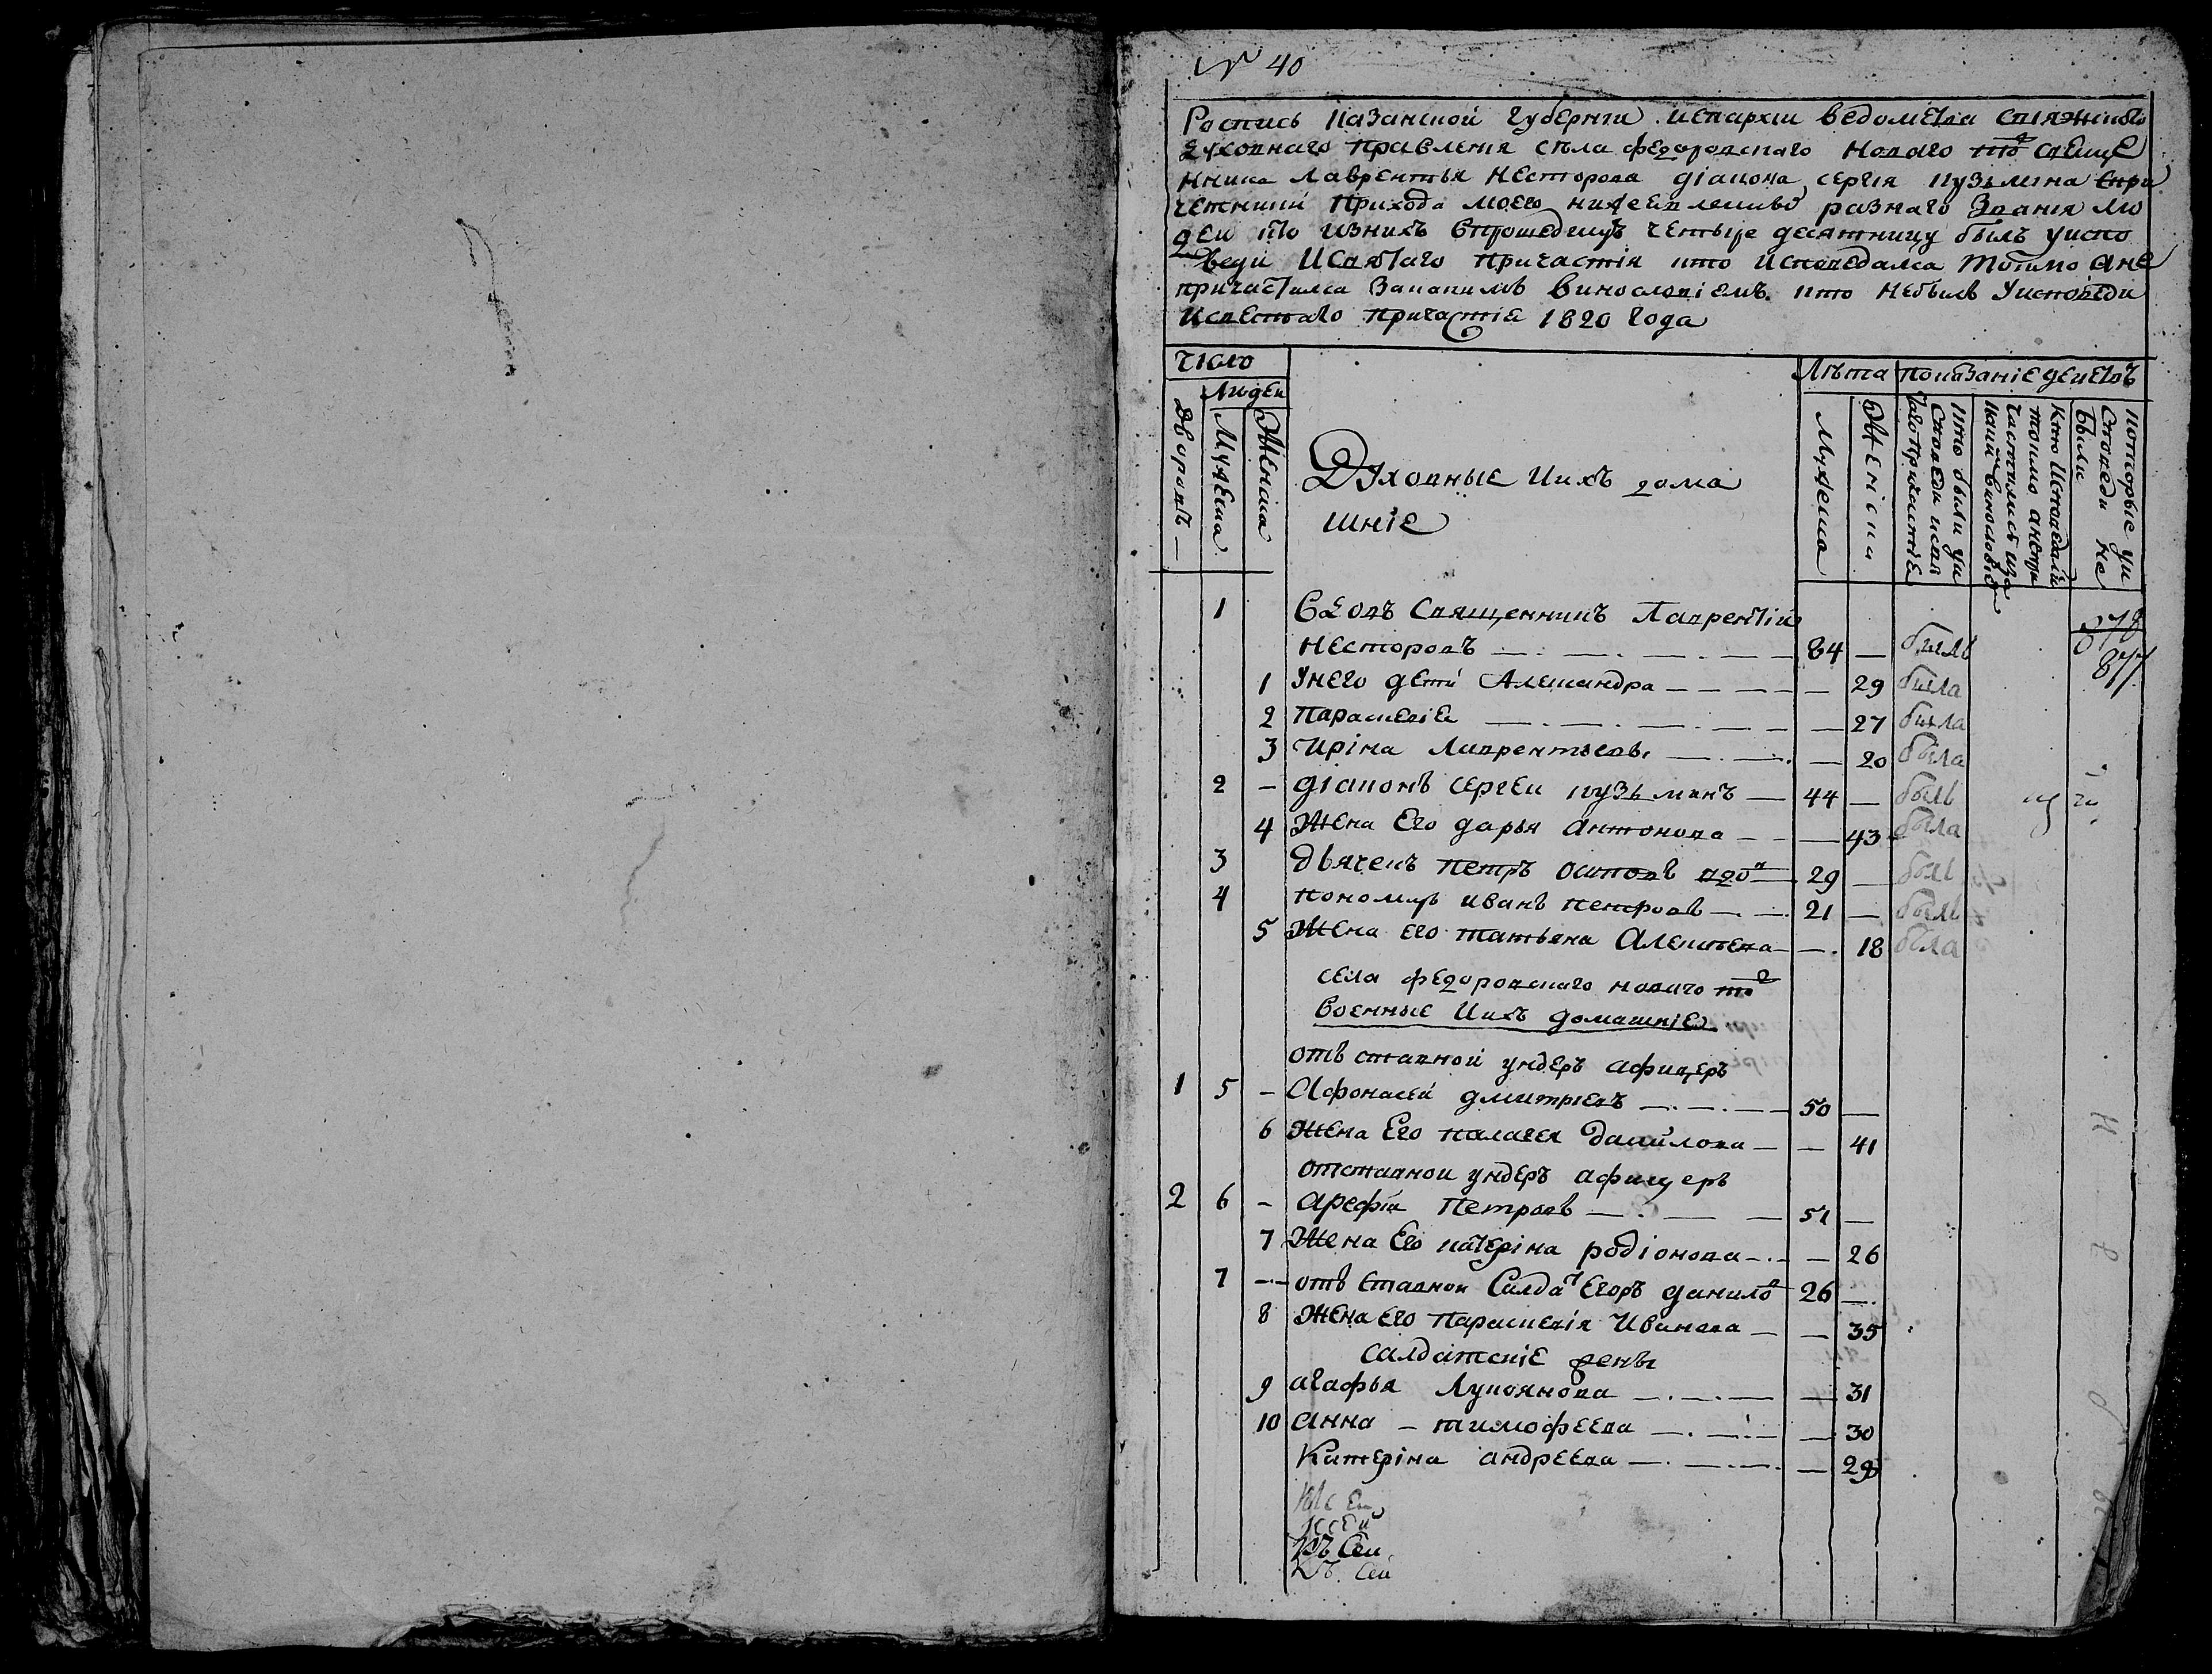 № 40
Роспись Казанской губернги иепархіи ведомства свіяжнскаго
духовнаго правленія села федоровскаго новаго тоⷤ свеще
нника лаврентья несторова діакона сергія кузьмина спри
четники прихода моего нижеевленныѣ разнаго званія лю
деи кто изнихъ впрошедшуѣ четыре десятницу былъ уиспо
веди Исвятаго причастія кто исповедался токмо ане
причастился закакимъ винословіемъ кто небылъ уисповѣди
исвестаго причастіе 1820 года
число
Людеи
Дворовъ
Мужеска
Женска
Духовные Иихъ дома
шніе
Лѣта
Мужеска
Женски
показаніе деисвъ
кто были уи
споведи исвя
таго причастіе
Кто исповедали
токмо анепри
частились иза
каки винословіѣ
которые уи
споведи не
были
1 Вдовъ Священникъ Лаврентій
несторовъ 84 — былъ
1 Унего дети Александра — 29 была
2 параскевіе — 27 была
3 иріна Лаврентьевы — 20 была
2 — діаконъ сергеи кузьминъ 44 — былъ
4 Жена Его дарья антонова — 43 была
3 дьячекъ петръ осиповъ вдоⷡ 29 — былъ
4 пономарь иванъ петровъ 21 — былъ
5 Жена его татьяна Алексѣева — 18 была
878
877
села федоровскаго новаго тоⷤ
военные Иихъ домашніе
отъ ставной ундеръ афицеръ
1 5 — Афонасей дмитріевъ 50 —
6 Жена Его палагея данилова — 41
отставнои ундеръ афицеръ
2 6 — арефій петровъ 51 —
7 Жена Его катеріна родіонова — 26
7 — отъ ставнои Салдаⷮ Егоръ даниловⷡ 26 —
8 Жена его параскевія Иванова — 35
салдатскіе жены
9 агафья Лукоянова — 31
10 анна — тимофеева — 30
Катеріна андреева — 29
Къ Сеи
Къ Сей